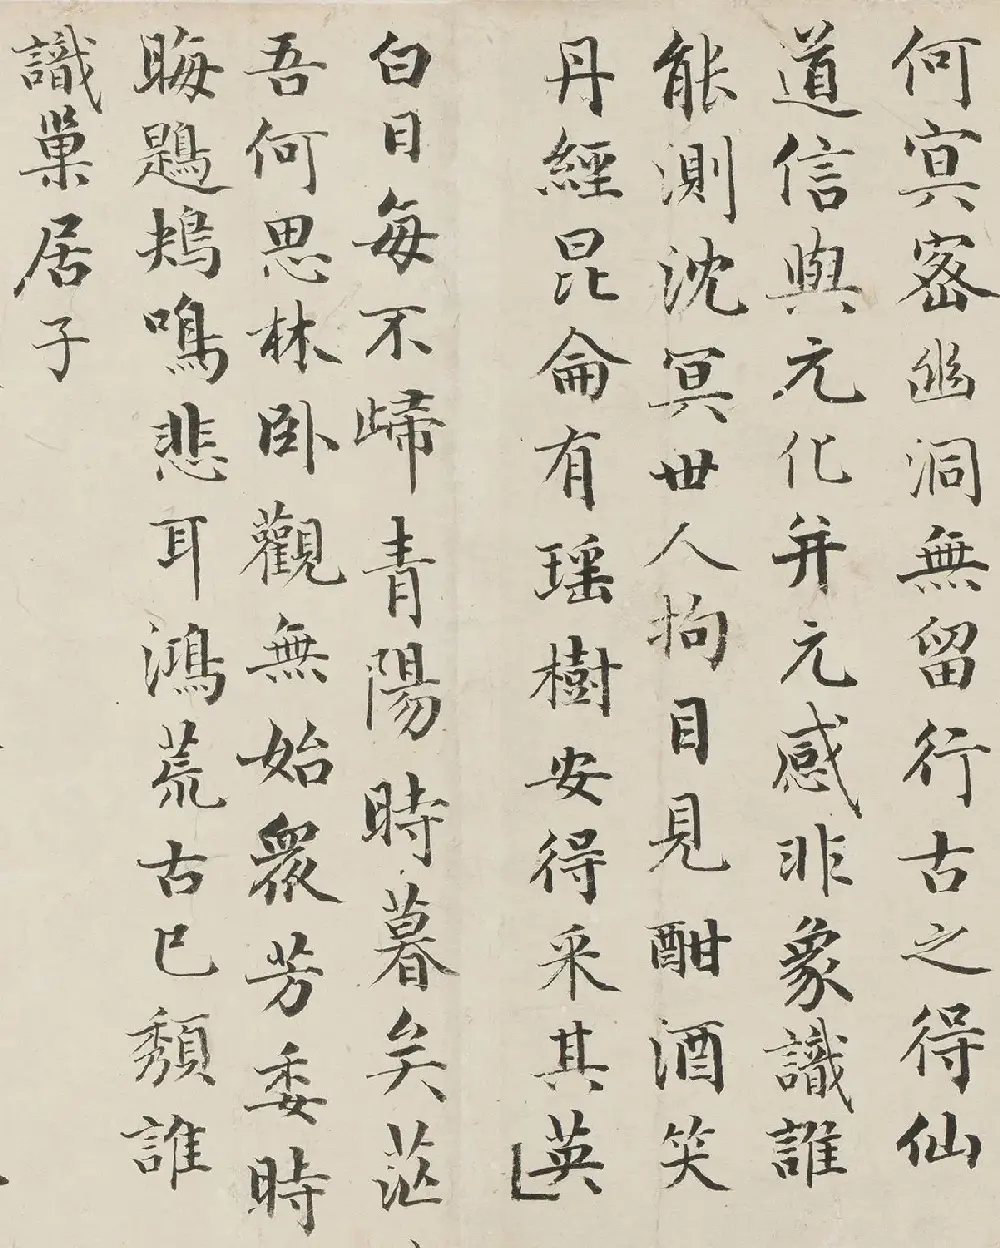 何冥密幽洞無留行古之得仙
道信與元化并元感非象識誰
能測沈冥世人拘目見酣酒笑
丹經昆侖有瑶樹安得采其英
白日每不歸青陽時暮矣茫
吾何思林卧觀無始衆芳委時
晦鶗鴂鳴悲耳鴻荒古已頹誰
識巢居子